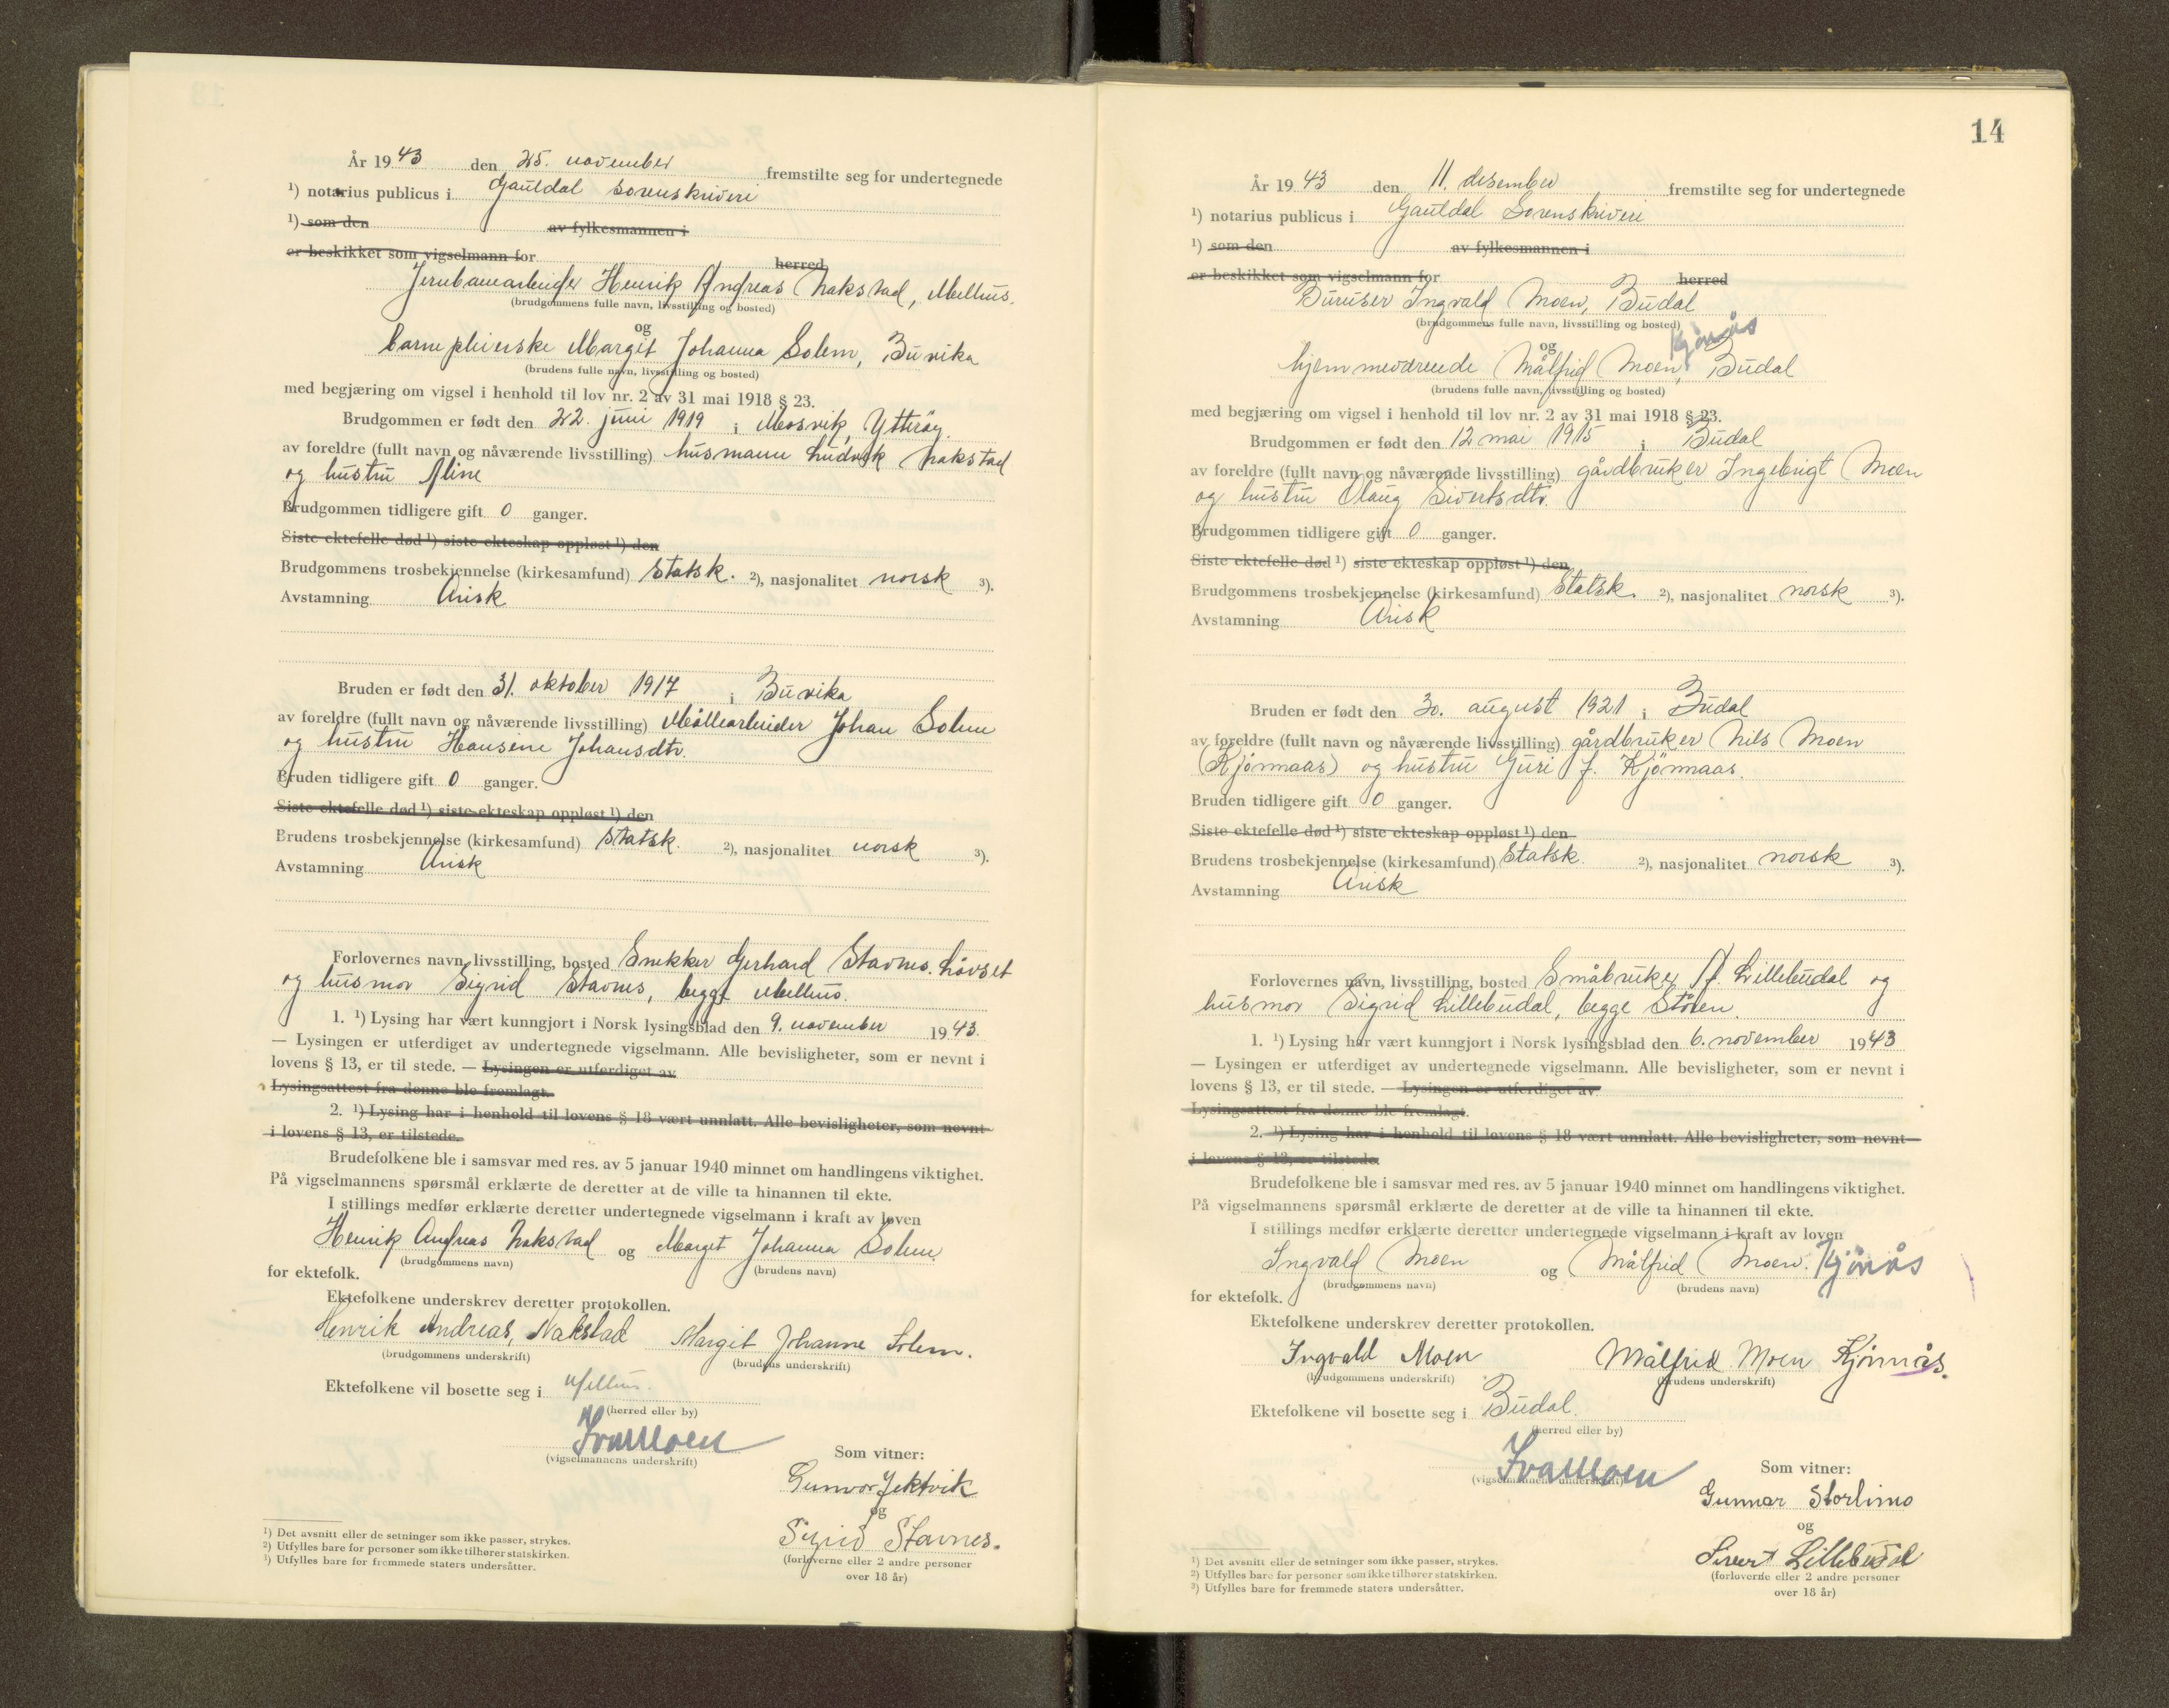 År 1943 den 25. november fremstilte seg for undertegnede
¹) notarius publicus i Gauldal sorenskriveri
¹) som den av fylkesmannen i
er beskikket som vigselmann for herred
Jernbanearbeider Henrik Andreas Nakstad, Melhus.
(brudgommens fulle navn, livsstilling og bosted)
og
barnepleierske Margit Johanna Solem, Buvika
(brudens fulle navn, livsstilling og bosted)
med begjæring om vigsel i henhold til lov nr. 2 av 31 mai 1918 § 23.
Brudgommen er født den 22. juni 1919 i Mosvik, Ytterøy.
av foreldre (fullt navn og nåværende livsstilling) husmann Ludvik Nakstad
og hustru Aline
Brudgommen tidligere gift 0 ganger.
Siste ektefelle død ¹) siste ekteskap oppløst ¹) den
Brudgommens trosbekjennelse (kirkesamfund) Statsk. ²), nasjonalitet norsk ³).
Avstamning Arisk
Bruden er født den 31. oktober 1917 i Buvika
av foreldre (fullt navn og nåværende livsstilling) Møllearbeider Johan Solem
og hustru Hansine Johansdtr.
Bruden tidligere gift 0 ganger.
Siste ektefelle død ¹) siste ekteskap oppløst ¹) den
Brudens trosbekjennelse (kirkesamfund) statsk. ²), nasjonalitet norsk ³).
Avstamning Arisk
Forlovernes navn, livsstilling, bosted Snekker Gerhard Stavnes. Løvset
og husmor Sigrid Stavnes, begge Melhus.
1. ¹) Lysing har vært kunngjort i Norsk lysingsblad den 9. november 1943.
— Lysingen er utferdiget av undertegnede vigselmann. Alle bevisligheter, som er nevnt i
lovens § 13, er til stede. — Lysingen er utferdiget av
Lysingsattest fra denne ble fremlagt.
2. ¹) Lysing har i henhold til lovens § 18 vært unnlatt. Alle bevisligheter, som nevnt
i lovens § 13, er tilstede.
Brudefolkene ble i samsvar med res. av 5 januar 1940 minnet om handlingens viktighet.
På vigselmannens spørsmål erklærte de deretter at de ville ta hinannen til ekte.
I stillings medfør erklærte deretter undertegnede vigselmann i kraft av loven
Henrik Andreas Nakstad og Marget Johanna Solem
(brudgommens navn) (brudens navn)
for ektefolk.
Ektefolkene underskrev deretter protokollen.
Henrik Andreas, Nakstad Margit Johanne Solem.
(brudgommens underskrift) (brudens underskrift)
Ektefolkene vil bosette seg i Melhus.
(herred eller by)
(vigselmannens underskrift)
Som vitner:
Gunvor Jektvik
og
Sigrid Stavnes.
(forloverne eller 2 andre personer
over 18 år)
¹) Det avsnitt eller de setninger som ikke passer, strykes.
²) Utfylles bare for personer som ikke tilhører statskirken.
³) Utfylles bare for fremmede staters undersåtter.
14
År 1943 den 11. desember fremstilte seg for undertegnede
¹) notarius publicus i Gauldal Sorenskriveri
¹) som den av fylkesmannen i
er beskikket som vigselmann for herred
Bureiser Ingvald Moen, Budal
(brudgommens fulle navn, livsstilling og bosted)
og Kjønås
hjemmeværende Målfrid Moen, Budal
(brudens fulle navn, livsstilling og bosted)
med begjæring om vigsel i henhold til lov nr. 2 av 31 mai 1918 § 23.
Brudgommen er født den 12 mai 1915 i Budal
av foreldre (fullt navn og nåværende livsstilling) gårdbruker Ingebrigt Moen
og hustru Olaug Sivertsdtr.
Brudgommen tidligere gift 0 ganger.
Siste ektefelle død ¹) siste ekteskap oppløst ¹) den
Brudgommens trosbekjennelse (kirkesamfund) Statsk. ²), nasjonalitet norsk ³).
Avstamning Arisk
Bruden er født den 30. august 1921 i Budal
av foreldre (fullt navn og nåværende livsstilling) gårdbruker Nils Moen
(Kjønmaas) og hustru Guri f. Kjönmaas.
Bruden tidligere gift 0 ganger.
Siste ektefelle død ¹) siste ekteskap oppløst ¹) den
Brudens trosbekjennelse (kirkesamfund) Statsk. ²), nasjonalitet norsk ³).
Avstamning Arisk
Forlovernes navn, livsstilling, bosted Småbruker A. Lillebudal og
husmor Sigrid Lillebudal, begge Støren.
1. ¹) Lysing har vært kunngjort i Norsk lysingsblad den 6. november 1943
— Lysingen er utferdiget av undertegnede vigselmann. Alle bevisligheter, som er nevnt i
lovens § 13, er til stede. — Lysingen er utferdiget av
Lysingsattest fra denne ble fremlagt.
2. ¹) Lysing har i henhold til lovens § 18 vært unnlatt. Alle bevisligheter, som nevnt
i lovens § 13, er tilstede.
Brudefolkene ble i samsvar med res. av 5 januar 1940 minnet om handlingens viktighet.
På vigselmannens spørsmål erklærte de deretter at de ville ta hinannen til ekte.
I stillings medfør erklærte deretter undertegnede vigselmann i kraft av loven
Ingvald Moen og Målfrid Moen. Kjönås
(brudgommens navn) (brudens navn)
for ektefolk.
Ektefolkene underskrev deretter protokollen.
Ingvald Moen Målfrid Moen Kjønnås.
(brudgommens underskrift) (brudens underskrift)
Ektefolkene vil bosette seg i Budal.
(herred eller by)
(vigselmannens underskrift)
Som vitner:
Gunnar Storlimo
og
Sivert Lillebudal
(forloverne eller 2 andre personer
over 18 år)
¹) Det avsnitt eller de setninger som ikke passer, strykes.
²) Utfylles bare for personer som ikke tilhører statskirken.
³) Utfylles bare for fremmede staters undersåtter.